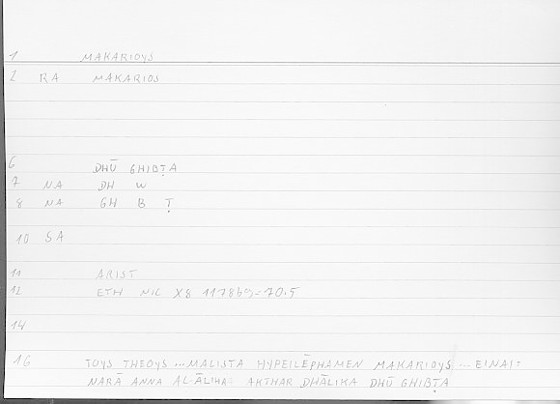 1 MAKARIOYS
2 RA MAKARIOS
6 DHŪ GHIBṬA
7 NA DH W
8 NA GH B Ṭ
10 SA
11 ARIST
12 ETH NIC X8 1178b9-
14
16 TOYS THEOYS ... MALISTA HYPEILĒPHAMEN MAKARIOYS ... EINAI:
NARĀ ANNA AL-ĀLIHA: AKTHAR DHĀLIKA DHŪ GHIBṬA